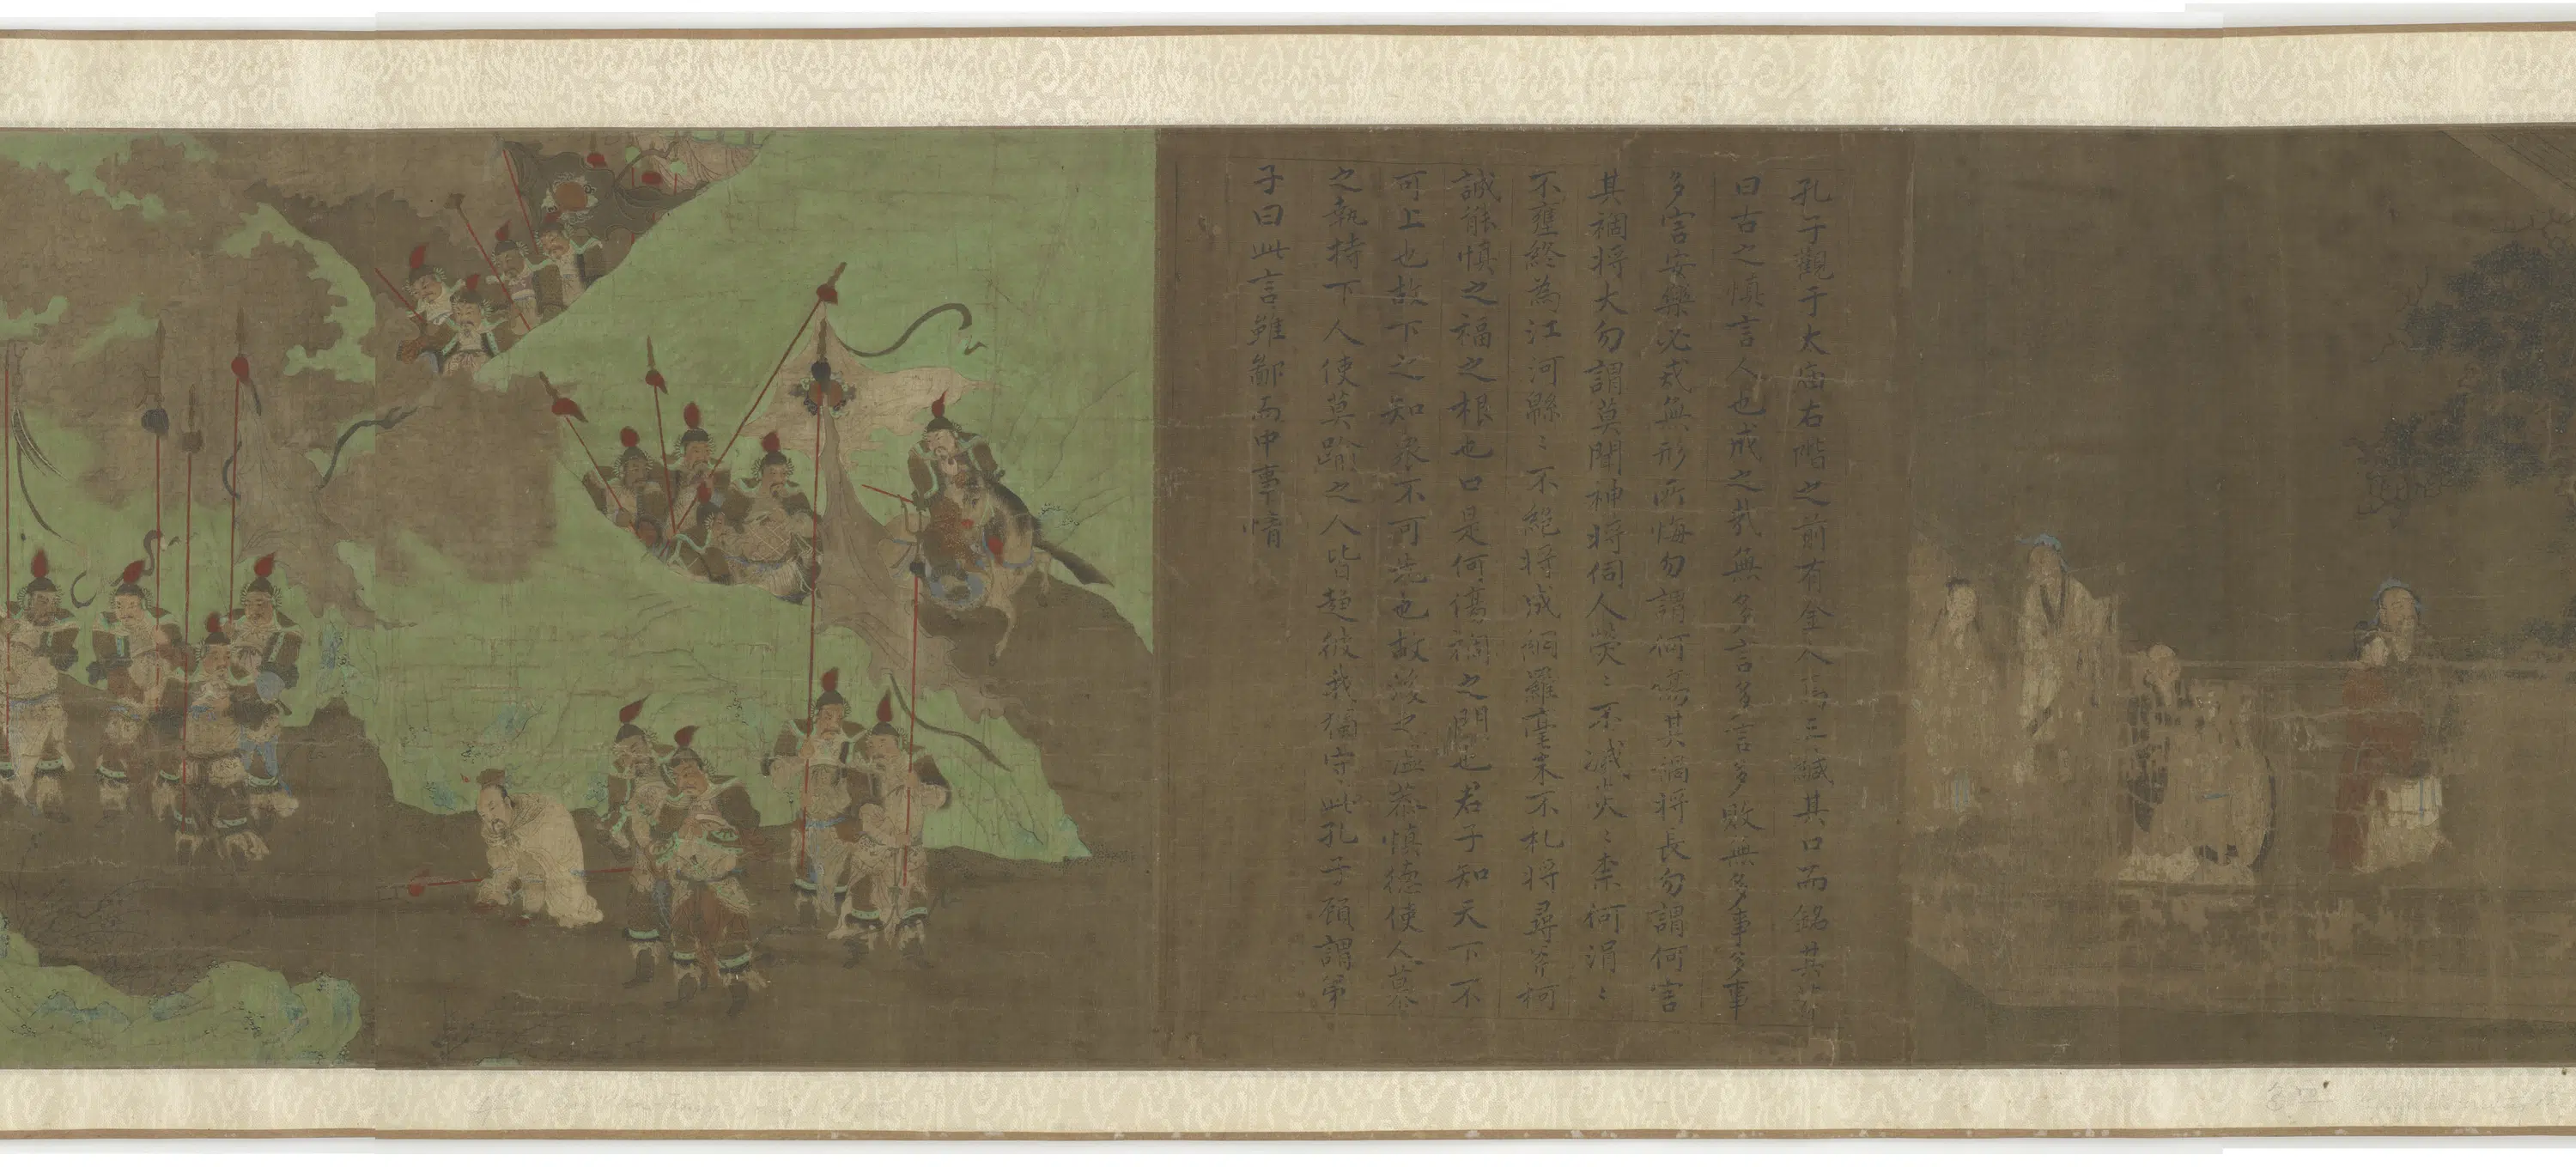 孔子觀于太庙右階之前有金人焉三緘其口而銘其背
曰古之慎言人也戒之哉無多言多言多敗無多事多事
多害安樂必戒無形所悔勿謂何傷其禍將長勿謂何害
其禍將大勿謂莫聞神將伺人熒〻不滅炎〻柰何涓〻
不壅終為江河緜〻不絕將成網羅毫末不札將尋斧柯
誠能慎之福之根也口是何傷禍之門也君子知天下不
可上也故下之知衆不可先也故後之溫恭慎德使人慕
之執持下人使莫踰之人皆趨彼我獨守此孔子顧謂弟
子曰此言雖鄙而中事情